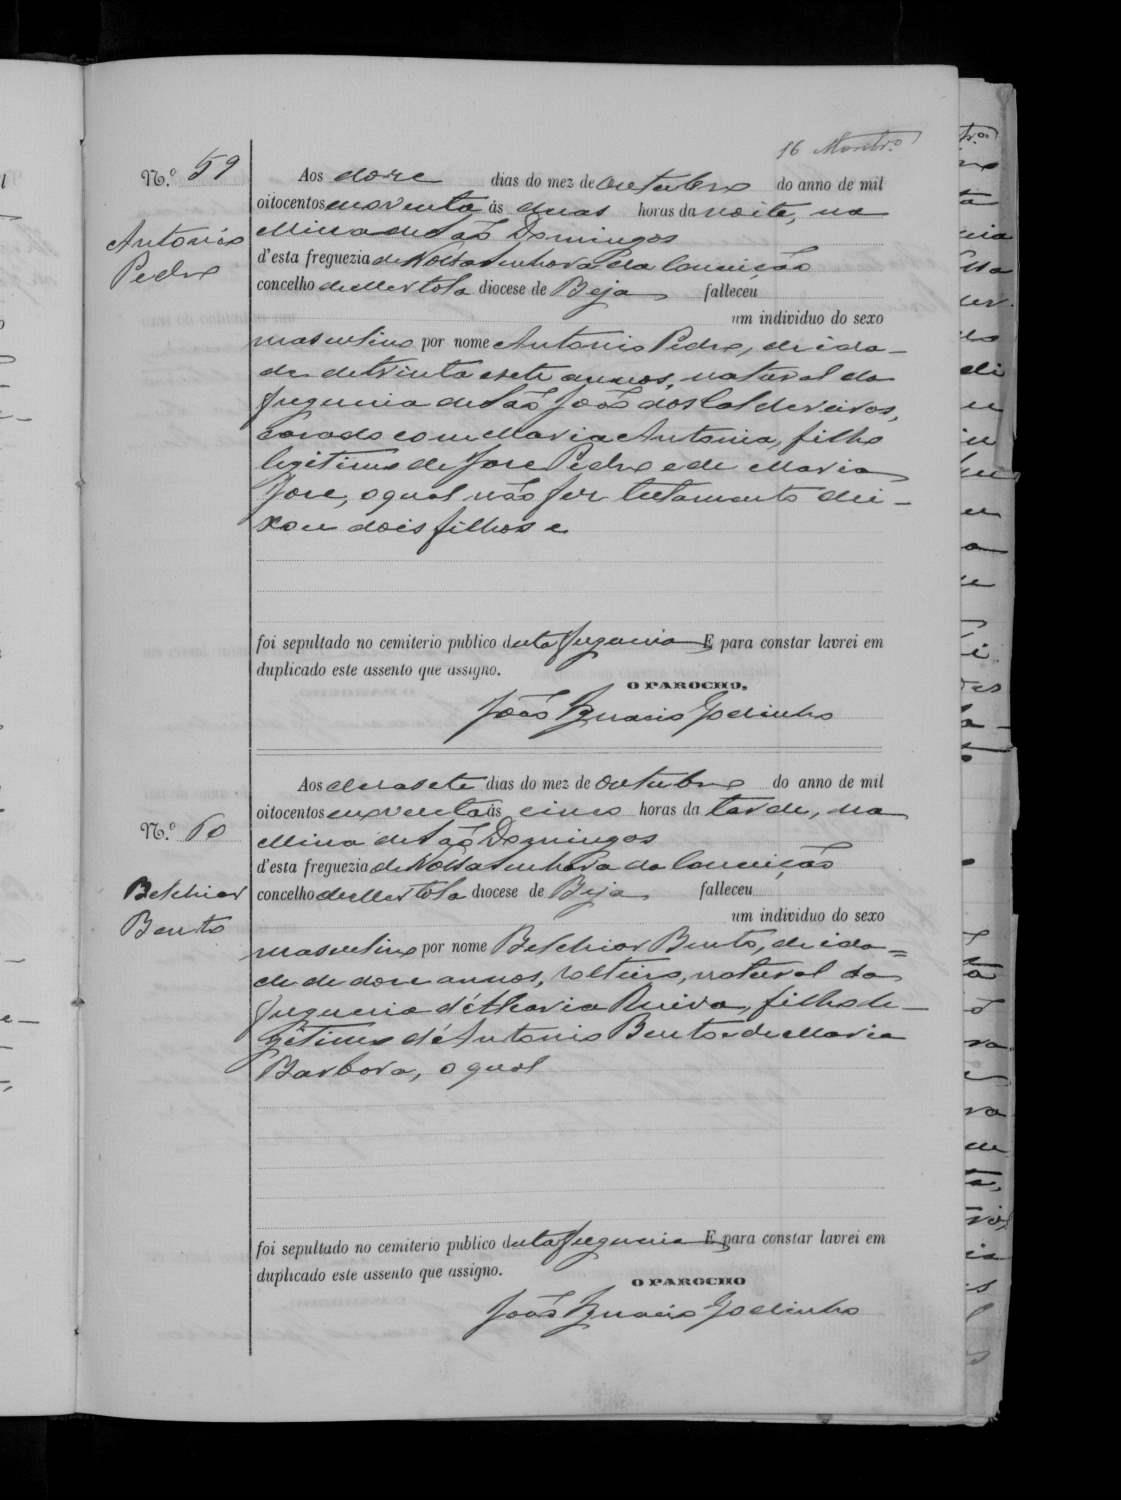 16 Montr.º
N.º 59
Antonio
Pedro
Aos doze dias do mez de Outubro do anno de mil
oitocentos noventa ás duas horas da noite, na
Mina de São Domingos
d'esta freguezia de Nossa Senhora da Conceição
concelho de Mertola diocese de Beja falleceu
um individuo do sexo
masculino por nome Antonio Pedro, de ida-
de de trinta e sete annos, natural da
freguezia de São João dos Caldeireiros,
casado com Maria Antonia, filho
legitimo de Jose Pedro e de Maria
Jose, o qual não fez testamento dei-
xou dois filhos e
foi sepultado no cemiterio publico desta freguezia E para constar lavrei em
duplicado este assento que assigno.
O PAROCHO,
João Ignacio Godinho
N.º 60
Belchior
Bento
Aos dezasete dias do mez de Outubro do anno de mil
oitocentos noventa ás cinco horas da tarde, na
Mina de São Domingos
d'esta freguezia de Nossa Senhora da Conceição
concelho de Mertola diocese de Beja falleceu
um individuo do sexo
masculino por nome Belchior Bento, de ida=
de de doze annos, solteiro, natural da
freguezia d'Alcaria Ruiva, filho le-
gitimo d'Antonio Bento e de Maria
Barbora, o qual
foi sepultado no cemiterio publico desta freguezia E para constar lavrei em
duplicado este assento que assigno.
O PAROCHO
João Ignacio Godinho